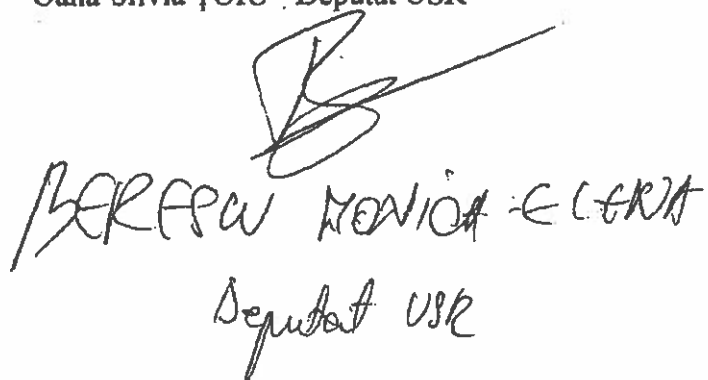 Oana-Silvia ȚOIU - Deputat USR
BERESCU MONICA-ELENA
Deputat USR